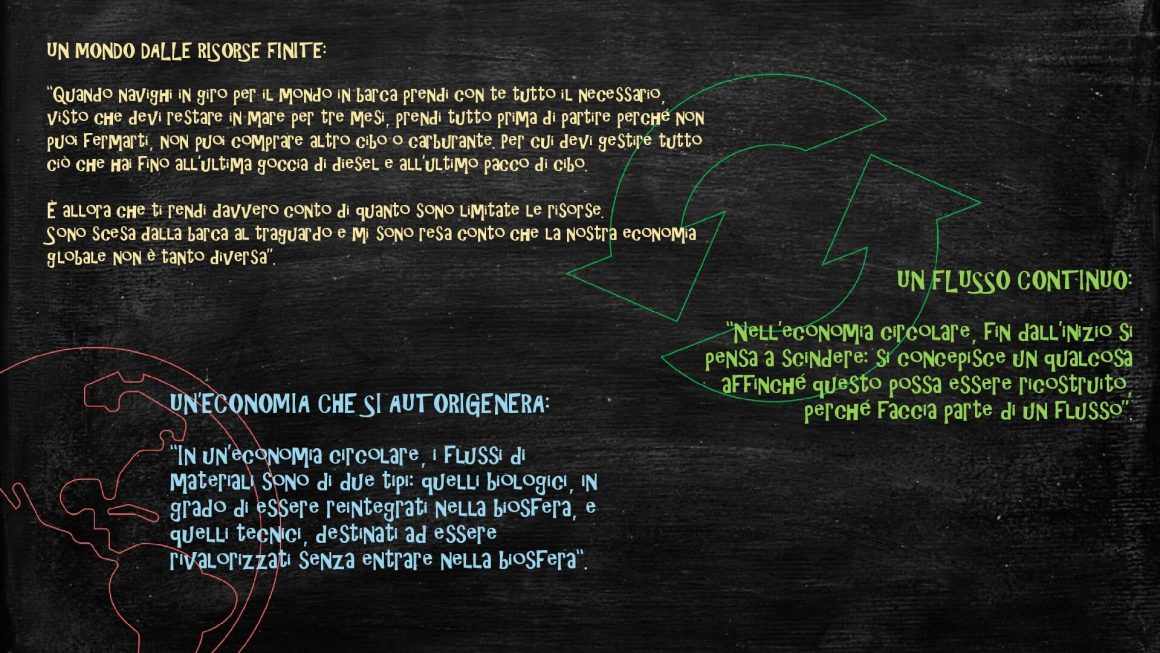 UN MONDO DALLE RISORSE FINITE:
"Quando navighi in giro per il mondo in barca prendi con te tutto il necessario,
visto che devi restare in mare per tre mesi, prendi tutto prima di partire perché non
puoi fermarti, non puoi comprare altro cibo o carburante. Per cui devi gestire tutto
ciò che hai fino all'ultima goccia di diesel e all'ultimo pacco di cibo.
È allora che ti rendi davvero conto di quanto sono limitate le risorse.
Sono scesa dalla barca al traguardo e mi sono resa conto che la nostra economia
globale non è tanto diversa".
UN FLUSSO CONTINUO:
"Nell'economia circolare, fin dall'inizio si
pensa a scindere: si concepisce un qualcosa
affinché questo possa essere ricostruito,
perché faccia parte di un flusso".
UN'ECONOMIA CHE SI AUTORIGENERA:
"In un'economia circolare, i flussi di
materiali sono di due tipi: quelli biologici, in
grado di essere reintegrati nella biosfera, e
quelli tecnici, destinati ad essere
rivalorizzati senza entrare nella biosfera".